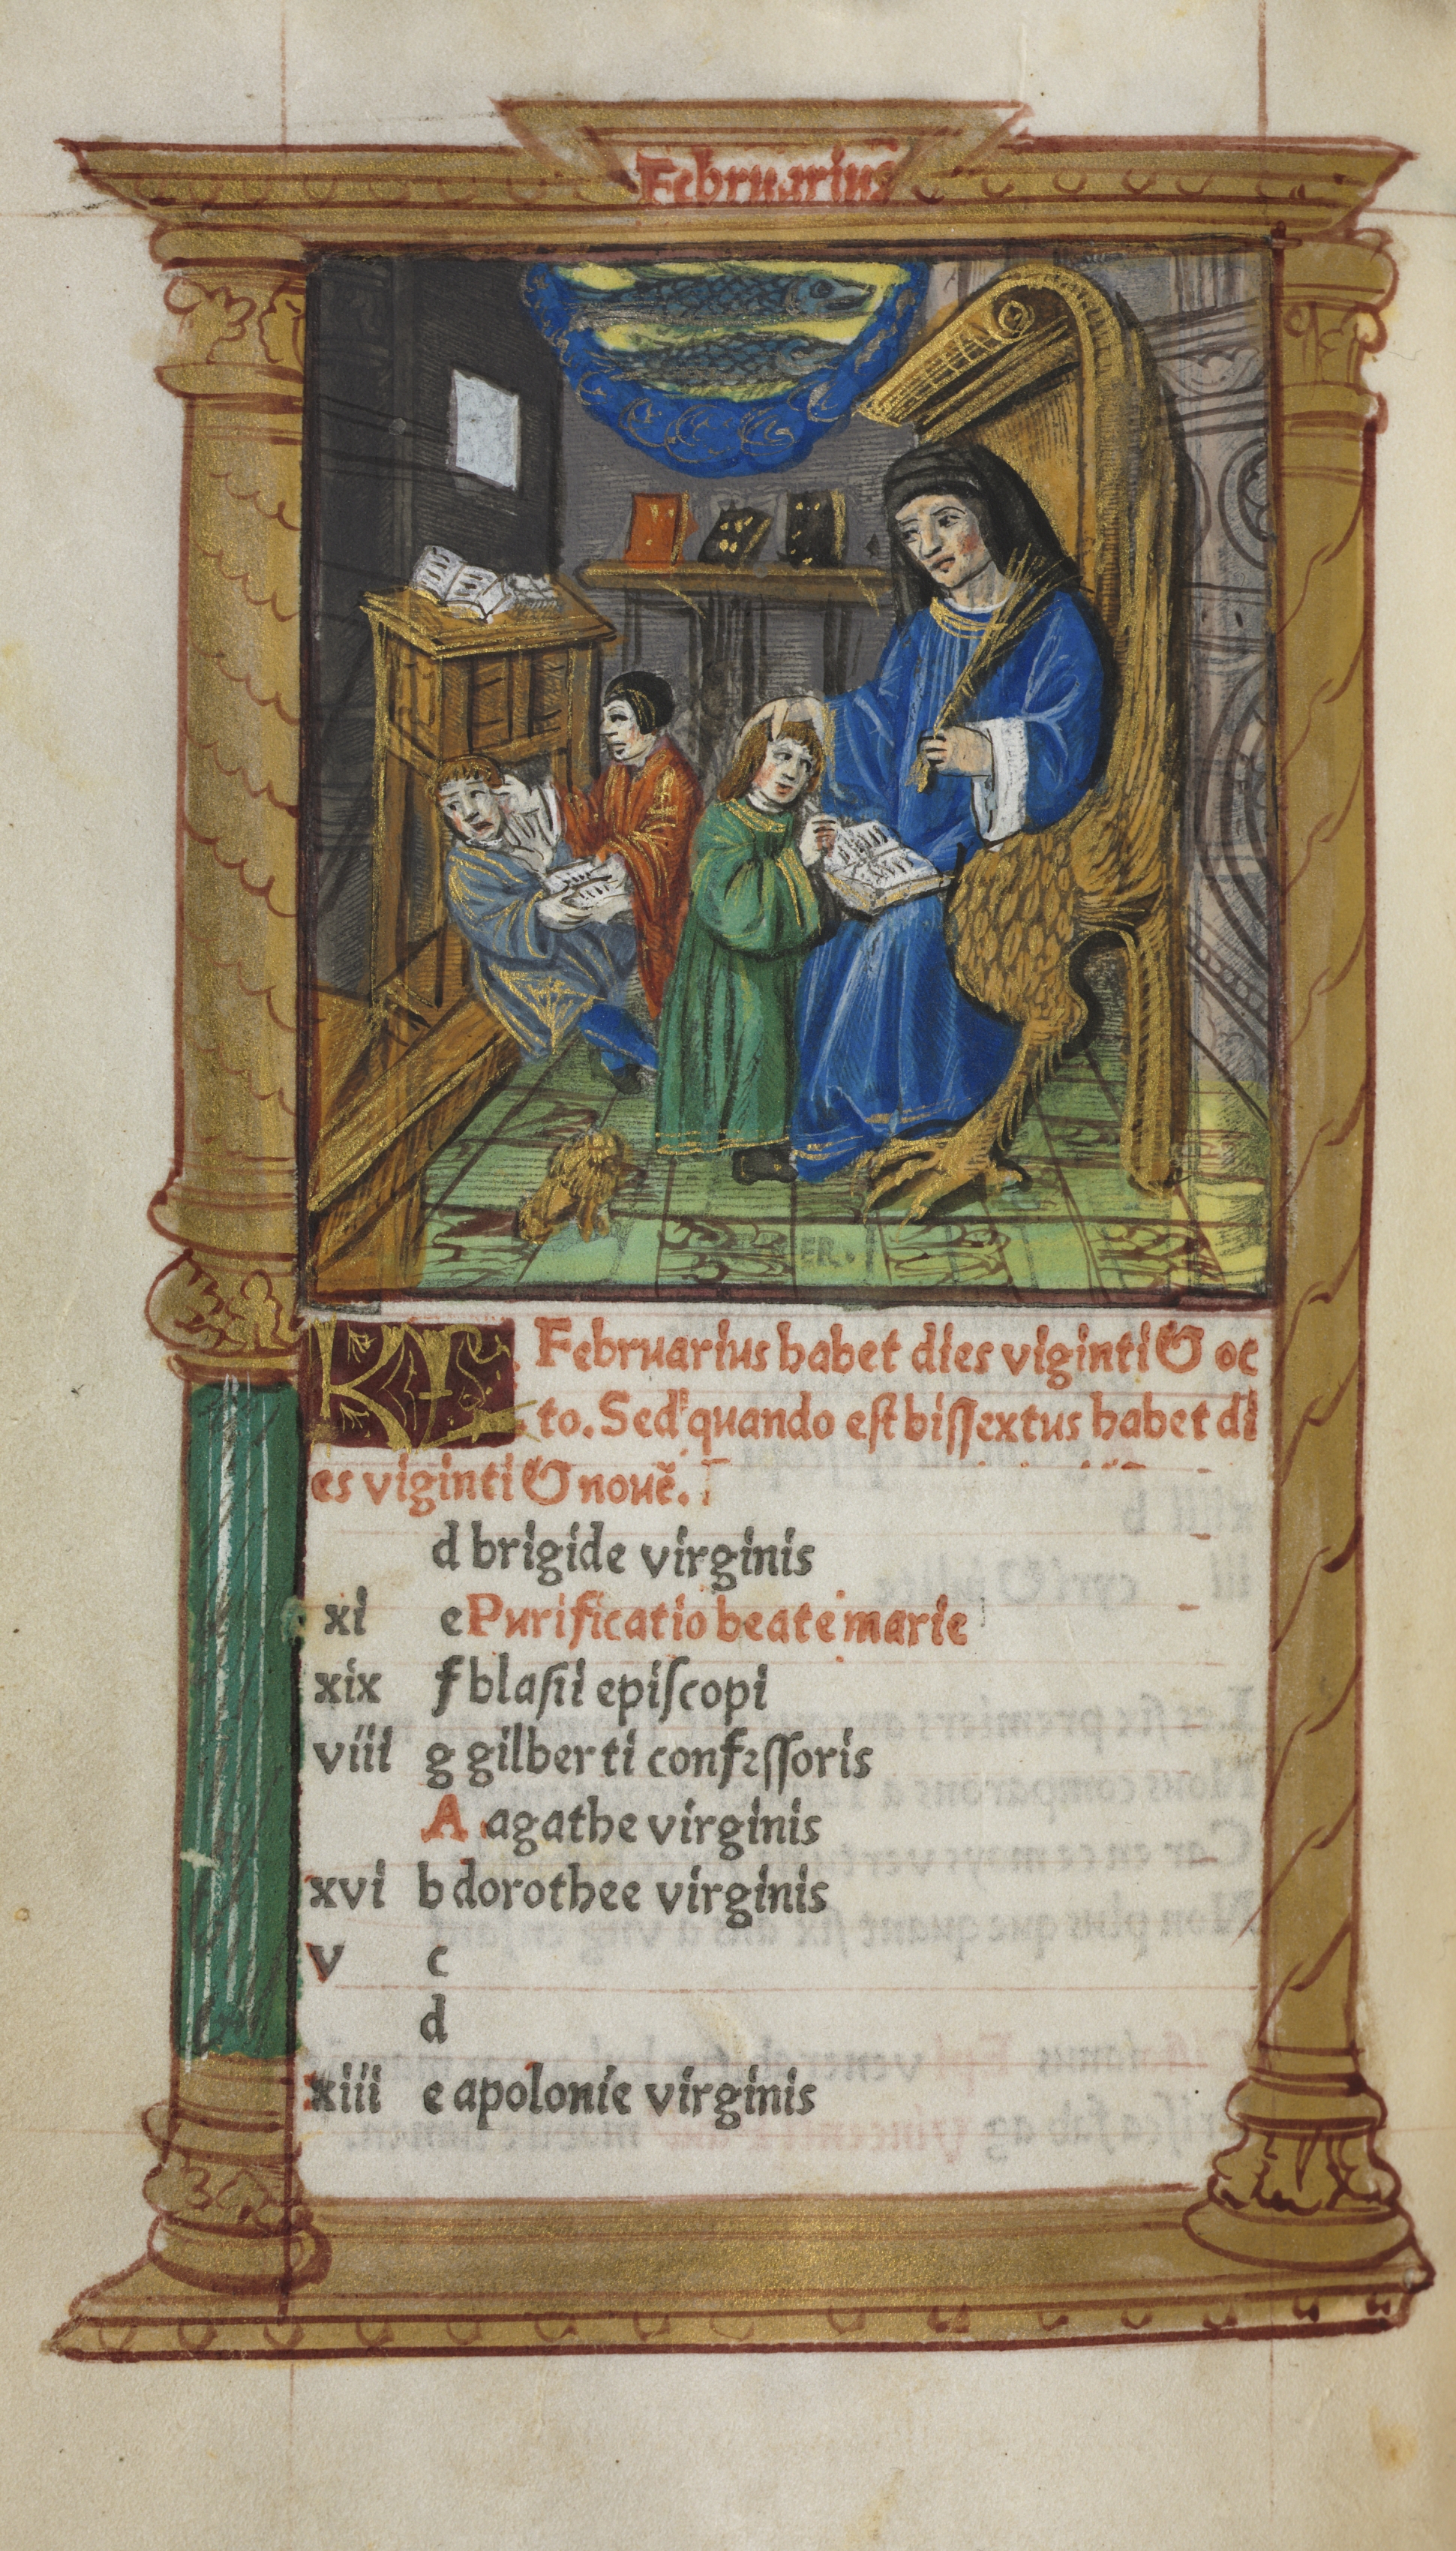 Februarius
ER.
KL. Februarius habet dies viginti & oc
to. Sed quando est bissextus habet di
es viginti & nouẽ.
d brigide virginis
xi e Purificatio beate marie
xix f blasii episcopi
viii g gilberti confessoris
A agathe virginis
xvi b dorothee virginis
v c
d
xiii e apolonie virginis